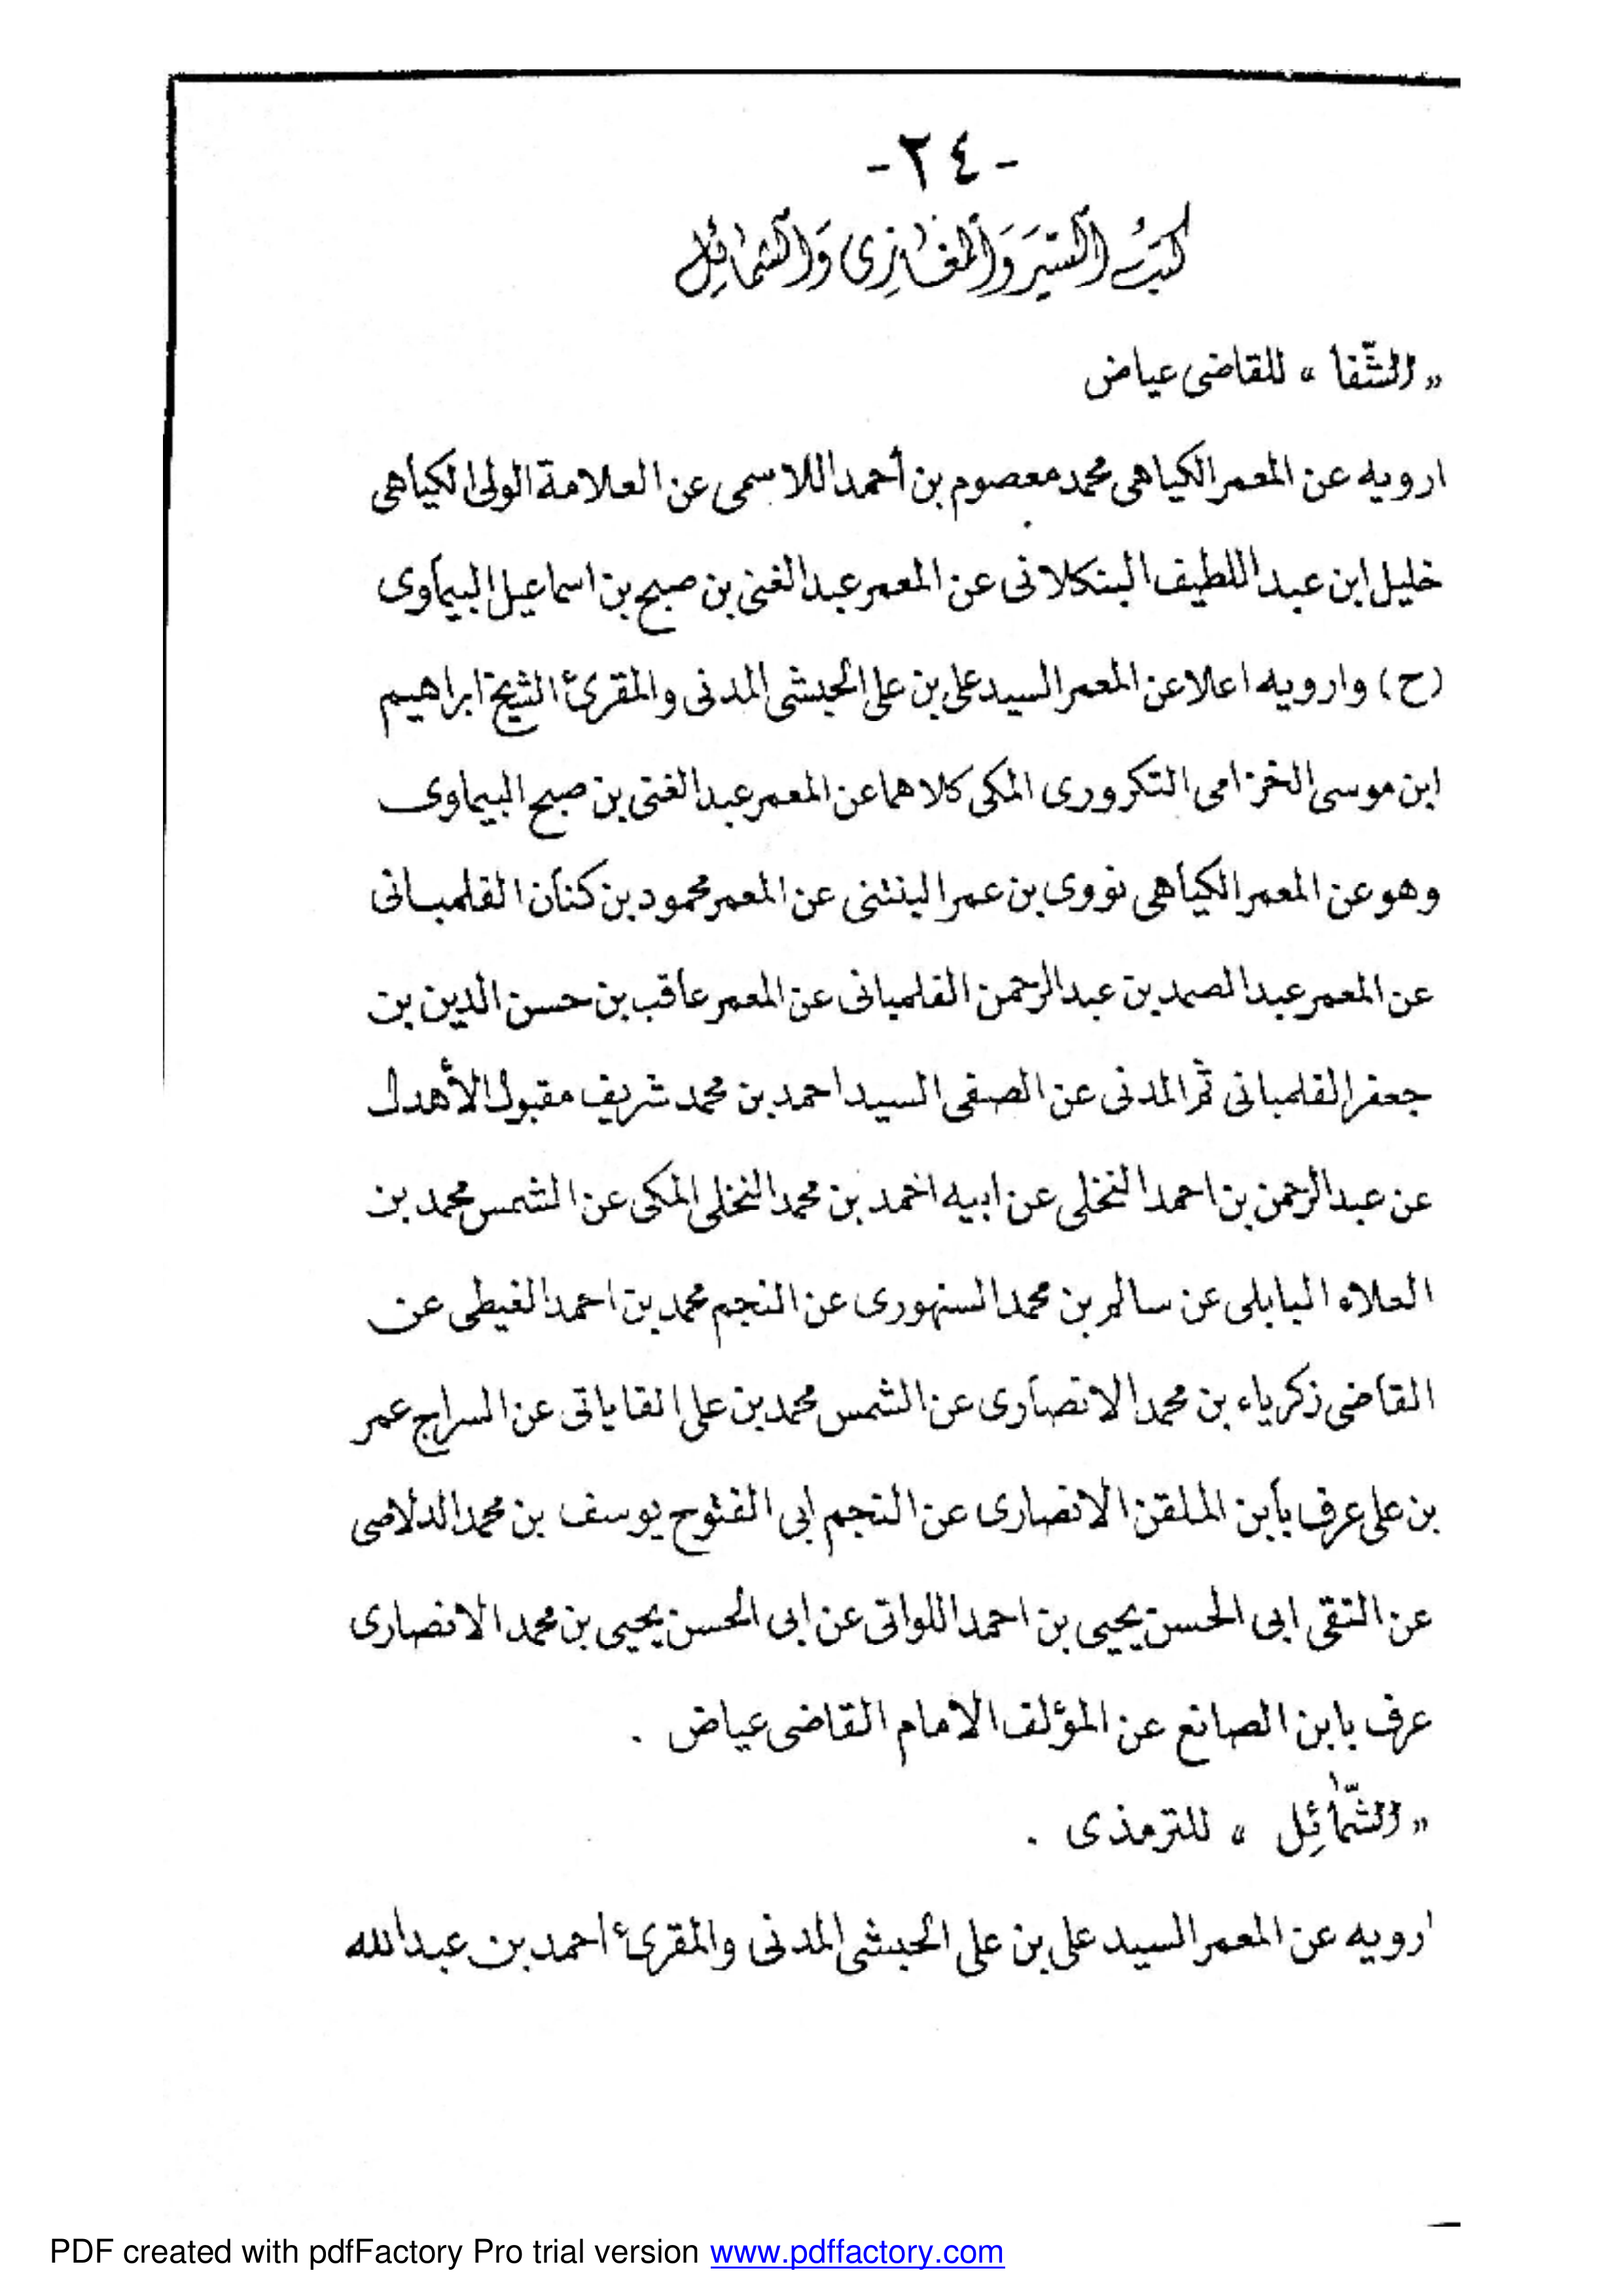 - ٢٤ -
كتب السير والمغازى والشمائل
« الشّفا » للقاضى عياض
ارويه عن المعمر الكياهى محمد معصوم بن أحمد اللاسمى عن العلامة الولى الكياهى
خليل ابن عبد اللطيف البنكلانى عن المعمر عبد الغنى بن صبح بن اسماعيل البيماوى
(ح) وارويه اعلا عن المعمر السيد على بن على الحبشى المدنى والمقرئ الشيخ ابراهيم
ابن موسى الخزامى التكرورى المكى كلاهما عن المعمر عبد الغنى بن صبح البيماوى
وهو عن المعمر الكياهى نووى بن عمر البنتنى عن المعمر محمود بن كنان الفلمبانى
عن المعمر عبد الصمد بن عبد الرحمن الفلمبانى عن المعمر عاقب بن حسن الدين بن
جعفر الفلمبانى ثم المدنى عن الصفى السيد احمد بن محمد شريف مقبول الأهدل
عن عبد الرحمن بن احمد النخلى عن ابيه احمد بن محمد النخلى المكى عن الشمس محمد بن
العلاء البابلى عن سالم بن محمد السنهورى عن النجم محمد بن احمد الغيطى عن
القاضى زكرياء بن محمد الانصارى عن الشمس محمد بن على القاياتى عن السراج عمر
بن على عرف بأبن الملقن الانصارى عن النجم ابى الفتوح يوسف بن محمد الدلاصى
عن التقى ابى الحسن يحيى بن احمد اللواتى عن ابى الحسن يحيى بن محمد الانصارى
عرف بابن الصانع عن المؤلف الامام القاضى عياض .
« الشّمائِل » للترمذى .
ارويه عن المعمر السيد على بن على الحبشى المدنى والمقرئ احمد بن عبد الله
PDF created with pdfFactory Pro trial version www.pdffactory.com